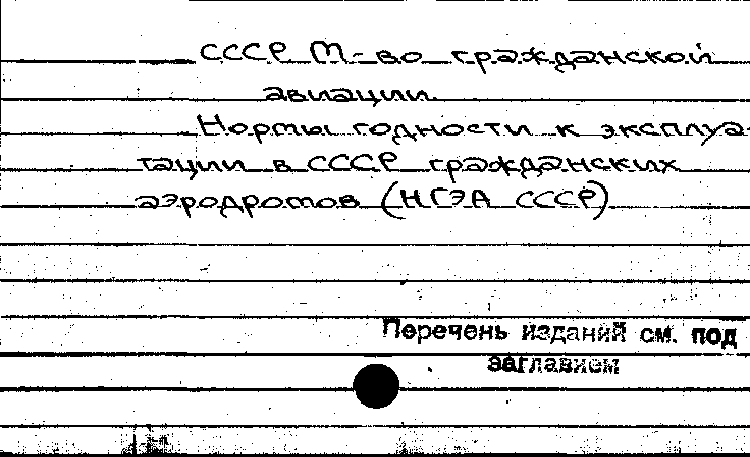 СССР М-во гражданской
авиации.
Нормы годности к эксплуа-
тации в СССР гражданских
аэродромов (НГЭА СССР)
Перечень изданий см. под
заглавием